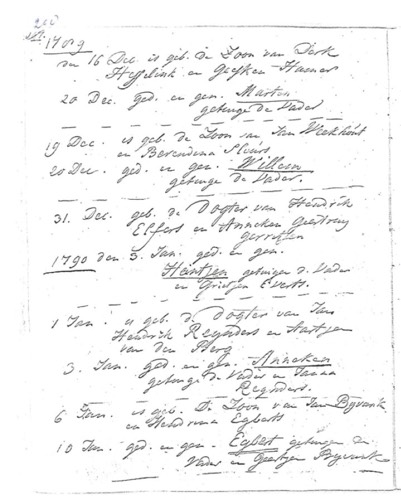 1789
den 16 Dec. is geb. de Zoon van Derk
Hesselink en Geesken Hamer
20 Dec. ged. en gen. Marten
getuige de Vader
19 Dec. is geb. de Zoon van Jan Weekhout
en Berendena Sleurs
20 Dec. ged. en gen. Willem
getuige de Vader.
31. Dec. geb. de Dogter van Hendrik
Elfers en Anneken Geertruy
Gerritzen
1790 den 3. Jan. ged. en gen.
Heintjen getuigen de Vader
en Grietjen Everts.
1 Jan. is geb. de Dogter van Jan
Hendrik Reijnders en Aartjen
van den Berg
3. Jan. ged. en gen. Anneken
getuige de Vader en
Reijnders.
6 Jan. is geb. De Zoon van Jan Bijvank
en Hendrina Egberts
10 Jan. ged. en gen. Egbert getuigen de
Vader en Geertjen Bijvank